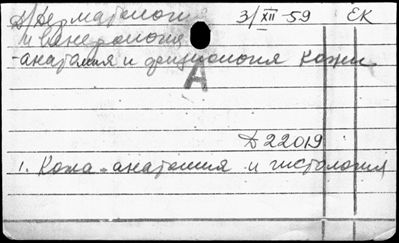 Д/Дерматология 3/XII-59 ЕК
и венерология
-анатомия и физиология кожи.
А
Д 22019
1. Кожа-анатомия и гистология